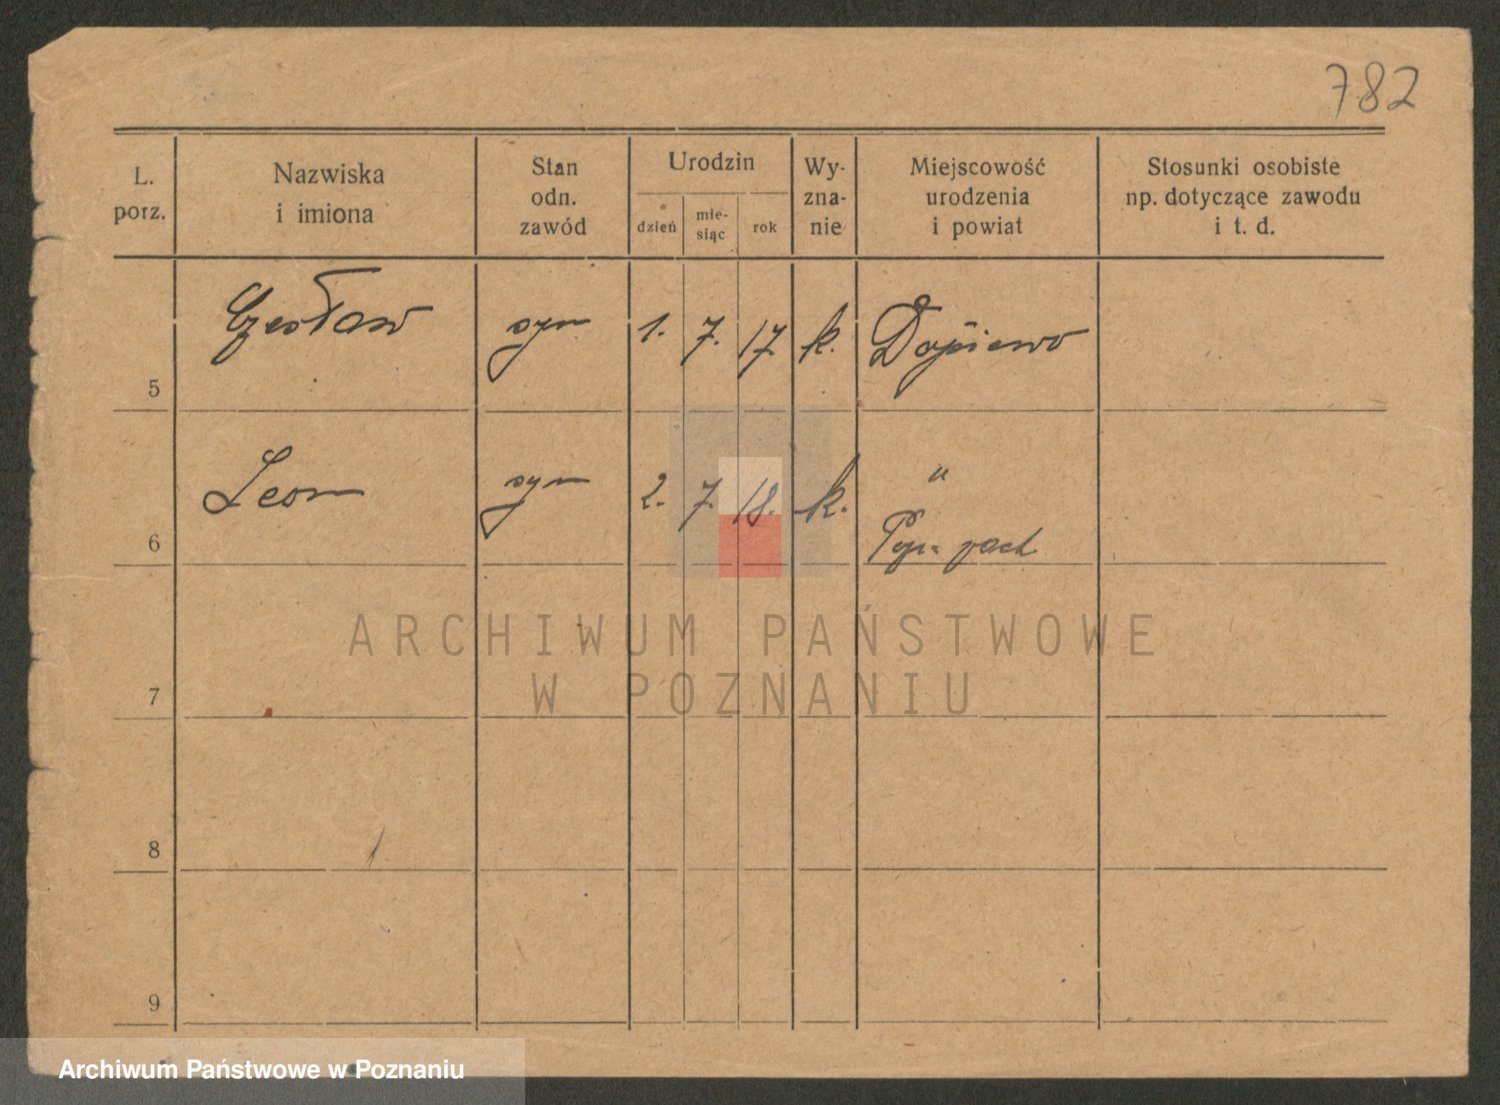 782
L. porz.
Nazwiska i imiona
Stan odn. zawód
Urodzin
dzień
mie-siąc
rok
Wy-zna-nie
Miejscowość urodzenia i powiat
Stosunki osobiste np. dotyczące zawodu i t. d.
5 Czesław syn 1. 7. 17 k. Dopiewo
6 Leon syn 2. 7. 18. k. "
zach
ARCHIWUM PAŃSTWOWE
W POZNANIU
7
8
9
Archiwum Państwowe w Poznaniu